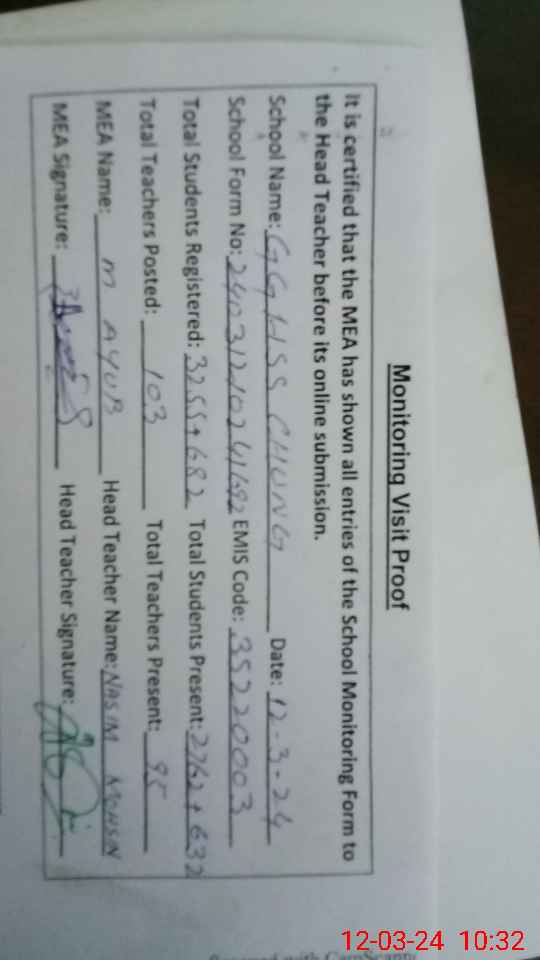 Monitoring Visit Proof
It is certified that the MEA has shown all entries of the School Monitoring Form to
the Head Teacher before its online submission.
School Name: GGHSS CHUNG Date: 12-3-24
School Form No: 24031210241692 EMIS Code: 35220003
Total Students Registered: 3255+682 Total Students Present: 2762+632
Total Teachers Posted: 103 Total Teachers Present: 95
MEA Name: M AYUB Head Teacher Name: NASIM MOHSIN
MEA Signature: Head Teacher Signature:
with CamScanner
12-03-24 10:32